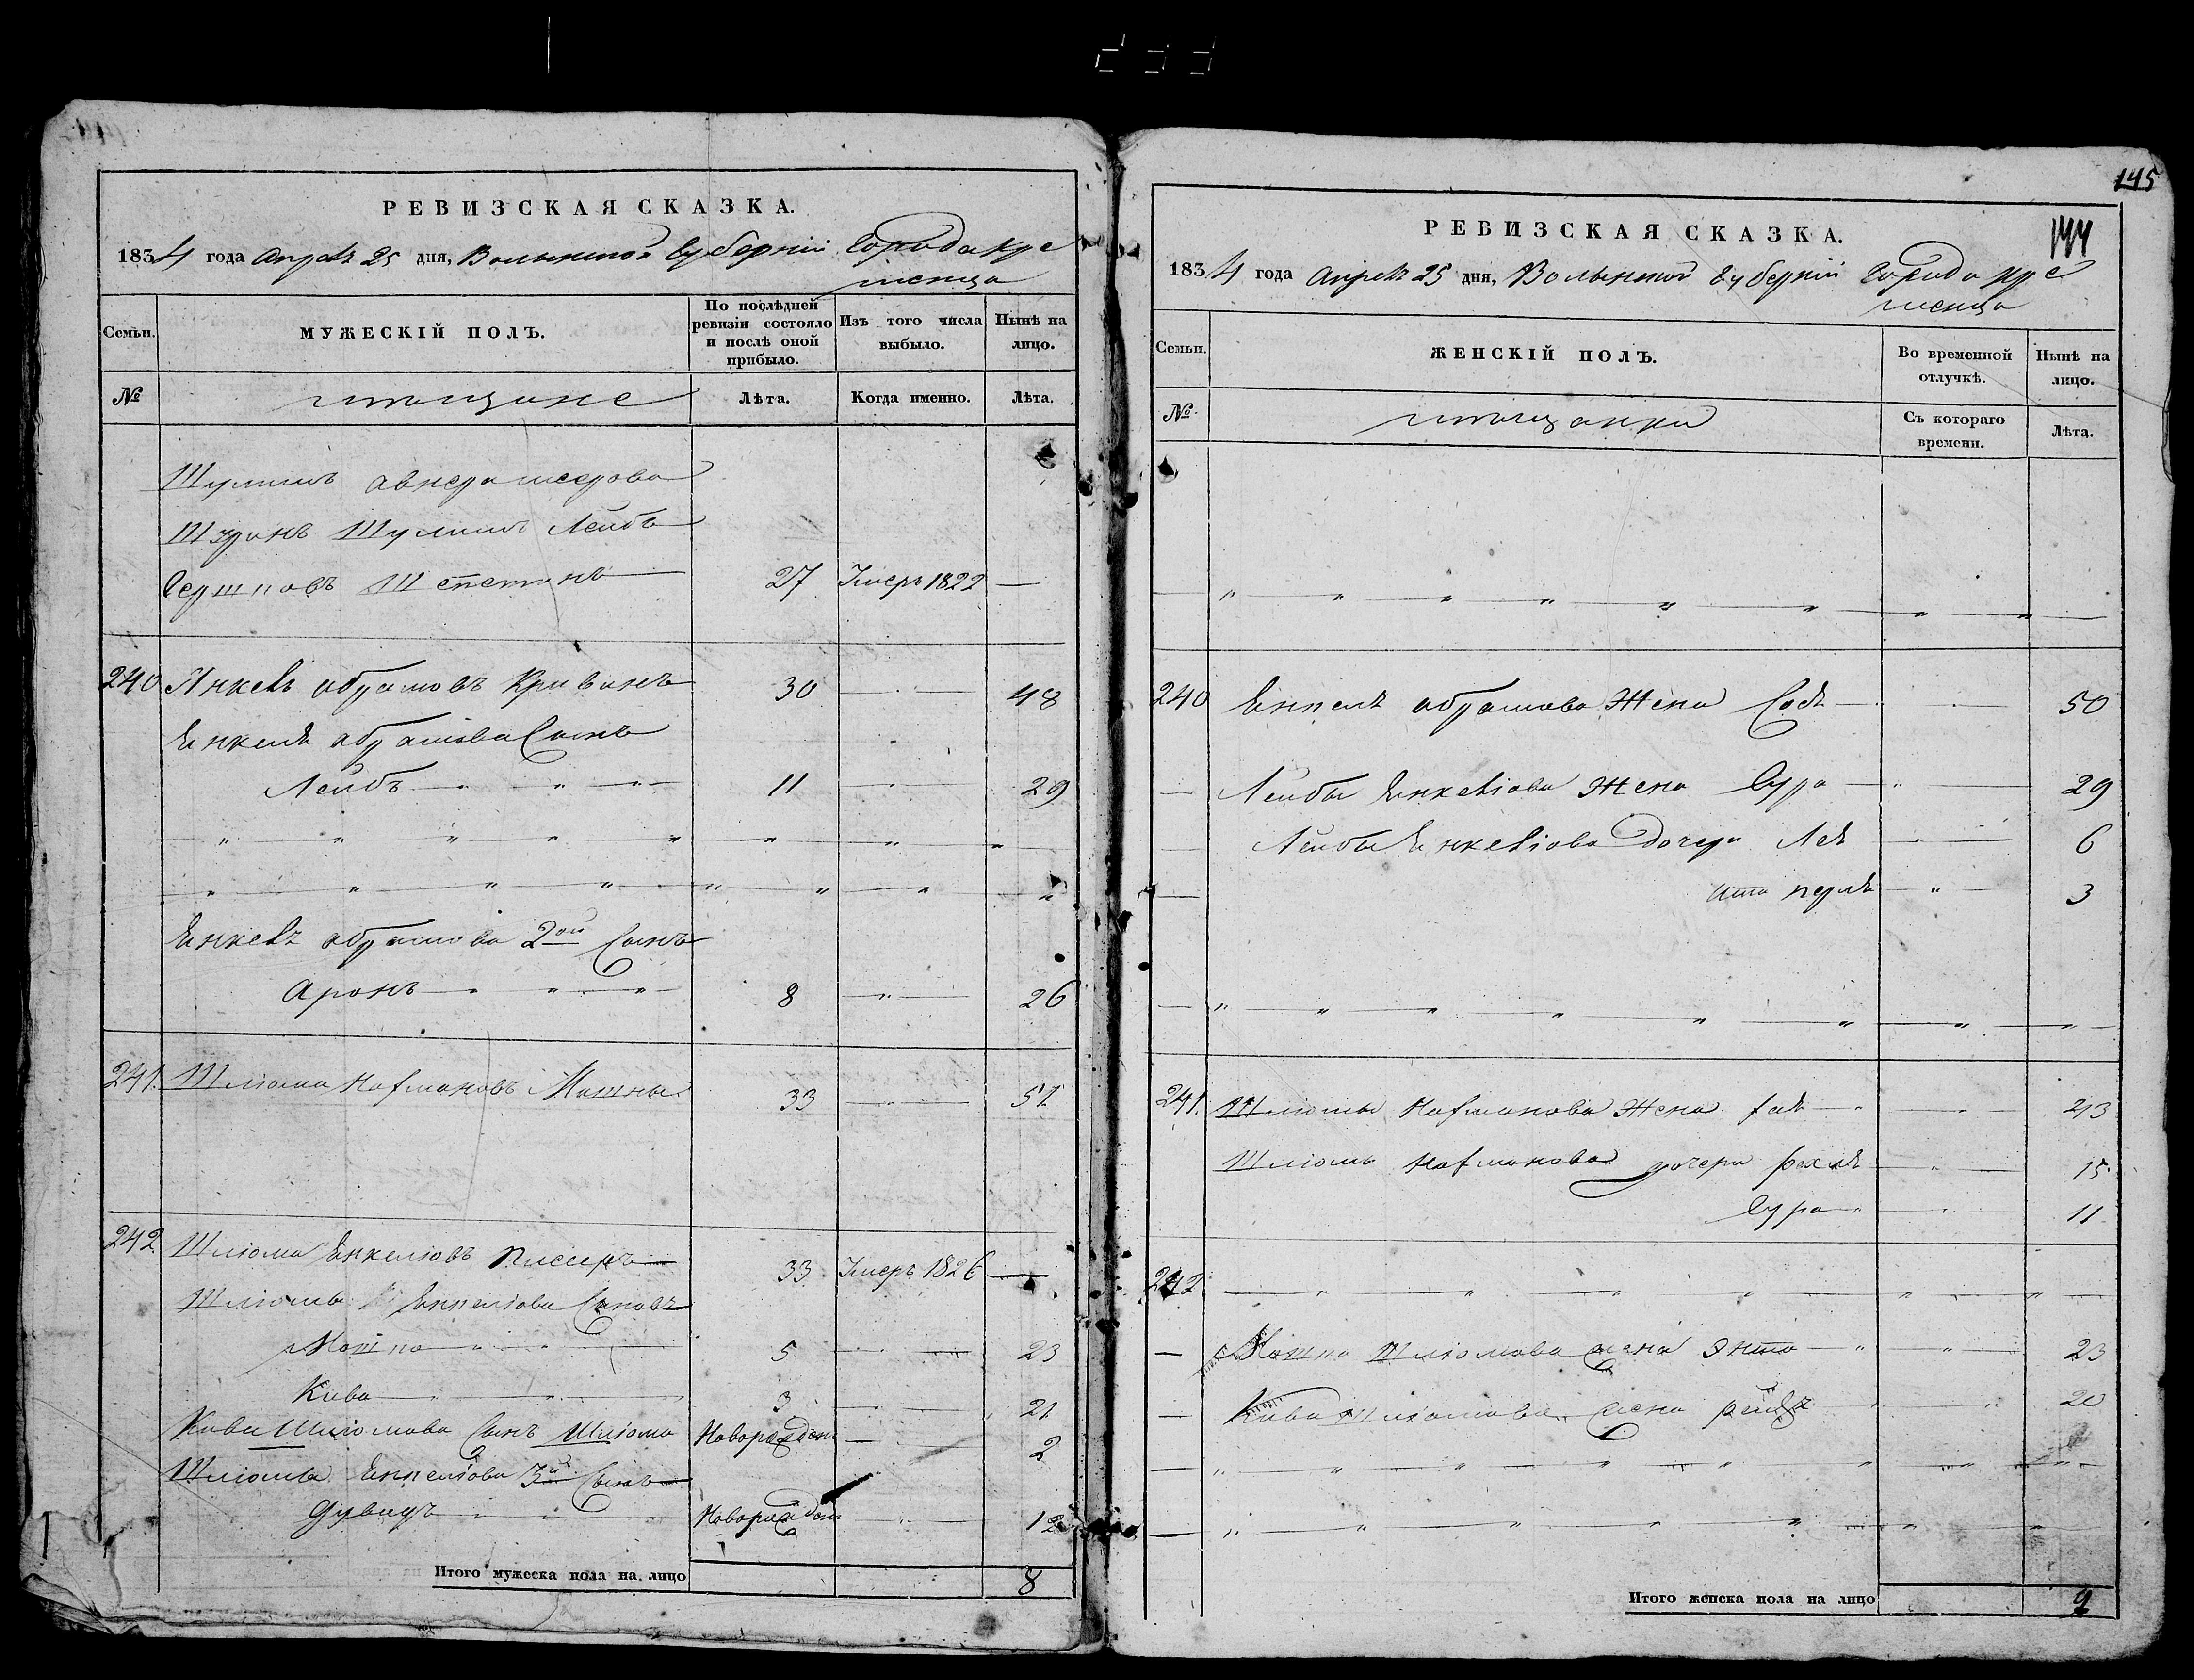 РЕВИЗСКАЯ СКАЗКА.
1834 года Апреля 25 дня, Волынской Губерніи Города Кре
менца
Семьи.
МУЖЕСКІЙ ПОЛЪ.
По послѣдней ревизіи состояло и послѣ оной прибыло.
Изъ того числа выбыло.
Нынѣ на лицо.
№
мѣщане
Лѣта.
Когда именно.
Лѣта.
27 Умеръ 1822 —
240 Янкель абрамовъ Кривинъ 30 — 48
Енкеля абрамова Сынъ
Лейбъ 11 — 29
Енкель абрамова 2ой Сынъ
Аронъ 8 — 26
241. Шліома Нафмановъ 33 — 51
242 Шліома Енкеліовъ 33 Умеръ 1826 —
Шліомы Енкеліова Сыновъ
Мошко 5 — 23
Кива 3 — 21
Кива Шліомова Сынъ Шліома Новорожден — 2
Шліомы Енкеліова 3й Сынъ
Дувидъ Новорожден — 12
Итого мужеска пола на лицо 8
145
144
РЕВИЗСКАЯ СКАЗКА.
1834 года Апреля 25 дня, Волынской Губерніи Города Кре
менца
Семьи.
ЖЕНСКІЙ ПОЛЪ.
Во временной отлучкѣ.
Нынѣ на лицо.
№
мѣщанки
Съ котораго времени.
Лѣта.
240 Енкеля абрамова Жена 50
Лейбы Енкеліова Жена Сура 29
Лейбы Енкеліова Дочери Лея 6
ита перля 3
241. Шліомы Нафманова Жена 43
Шліомы Нафманова дочери рахля 15
Сура 11
242
Мошка Шліомова жена Энта 23
Кива Шліомова жена 20
Итого женска пола на лицо 9